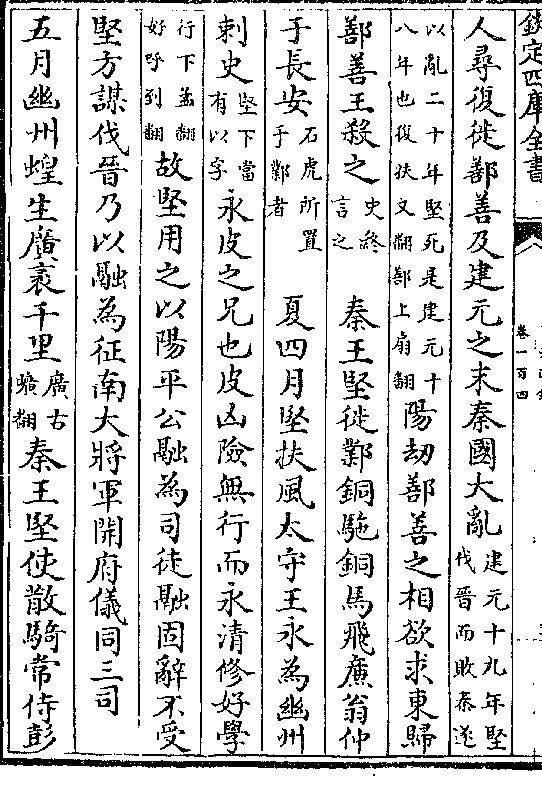 欽定四庫全書
卷一百四
人尋復徙鄯善及建元之末秦國大亂建元十九年堅伐晉而敗秦遂
以亂二十年堅死是建元十八年也復扶又翻鄯上扇翻陽劫鄯善之相欲求東歸
鄯善王殺之史終言之 秦王堅徙鄴銅駞銅馬飛廉翁仲
于長安石虎所置于鄴者 夏四月堅扶風太守王永為幽州
刺史堅下當有以字永皮之兄也皮凶險無行而永清修好學
行下孟翻好呼到翻故堅用之以陽平公融為司徒融固辭不受
堅方謀伐晉乃以融為征南大將軍開府儀同三司
五月幽州蝗生廣袤千里廣古曠翻秦王堅使散騎常侍彭